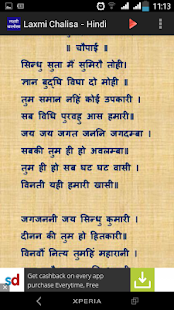 11:13
लक्ष्मी चालीसा
Laxmi Chalisa - Hindi
॥ चौपाई ॥
सिन्धु सुता मैं सुमिरौ तोही।
ज्ञान बुद्घि विघा दो मोही ॥
तुम समान नहिं कोई उपकारी ।
सब विधि पुरवहु आस हमारी॥
जय जय जगत जननि जगदम्बा ।
सबकी तुम ही हो अवलम्बा॥
तुम ही हो सब घट घट वासी।
विनती यही हमारी खासी॥
जगजननी जय सिन्धु कुमारी ।
दीनन की तुम हो हितकारी॥
विनवौं नित्य तुमहिं महारानी ।
sd
Get cashback on every app
purchase Everytime, Free
XPERIA